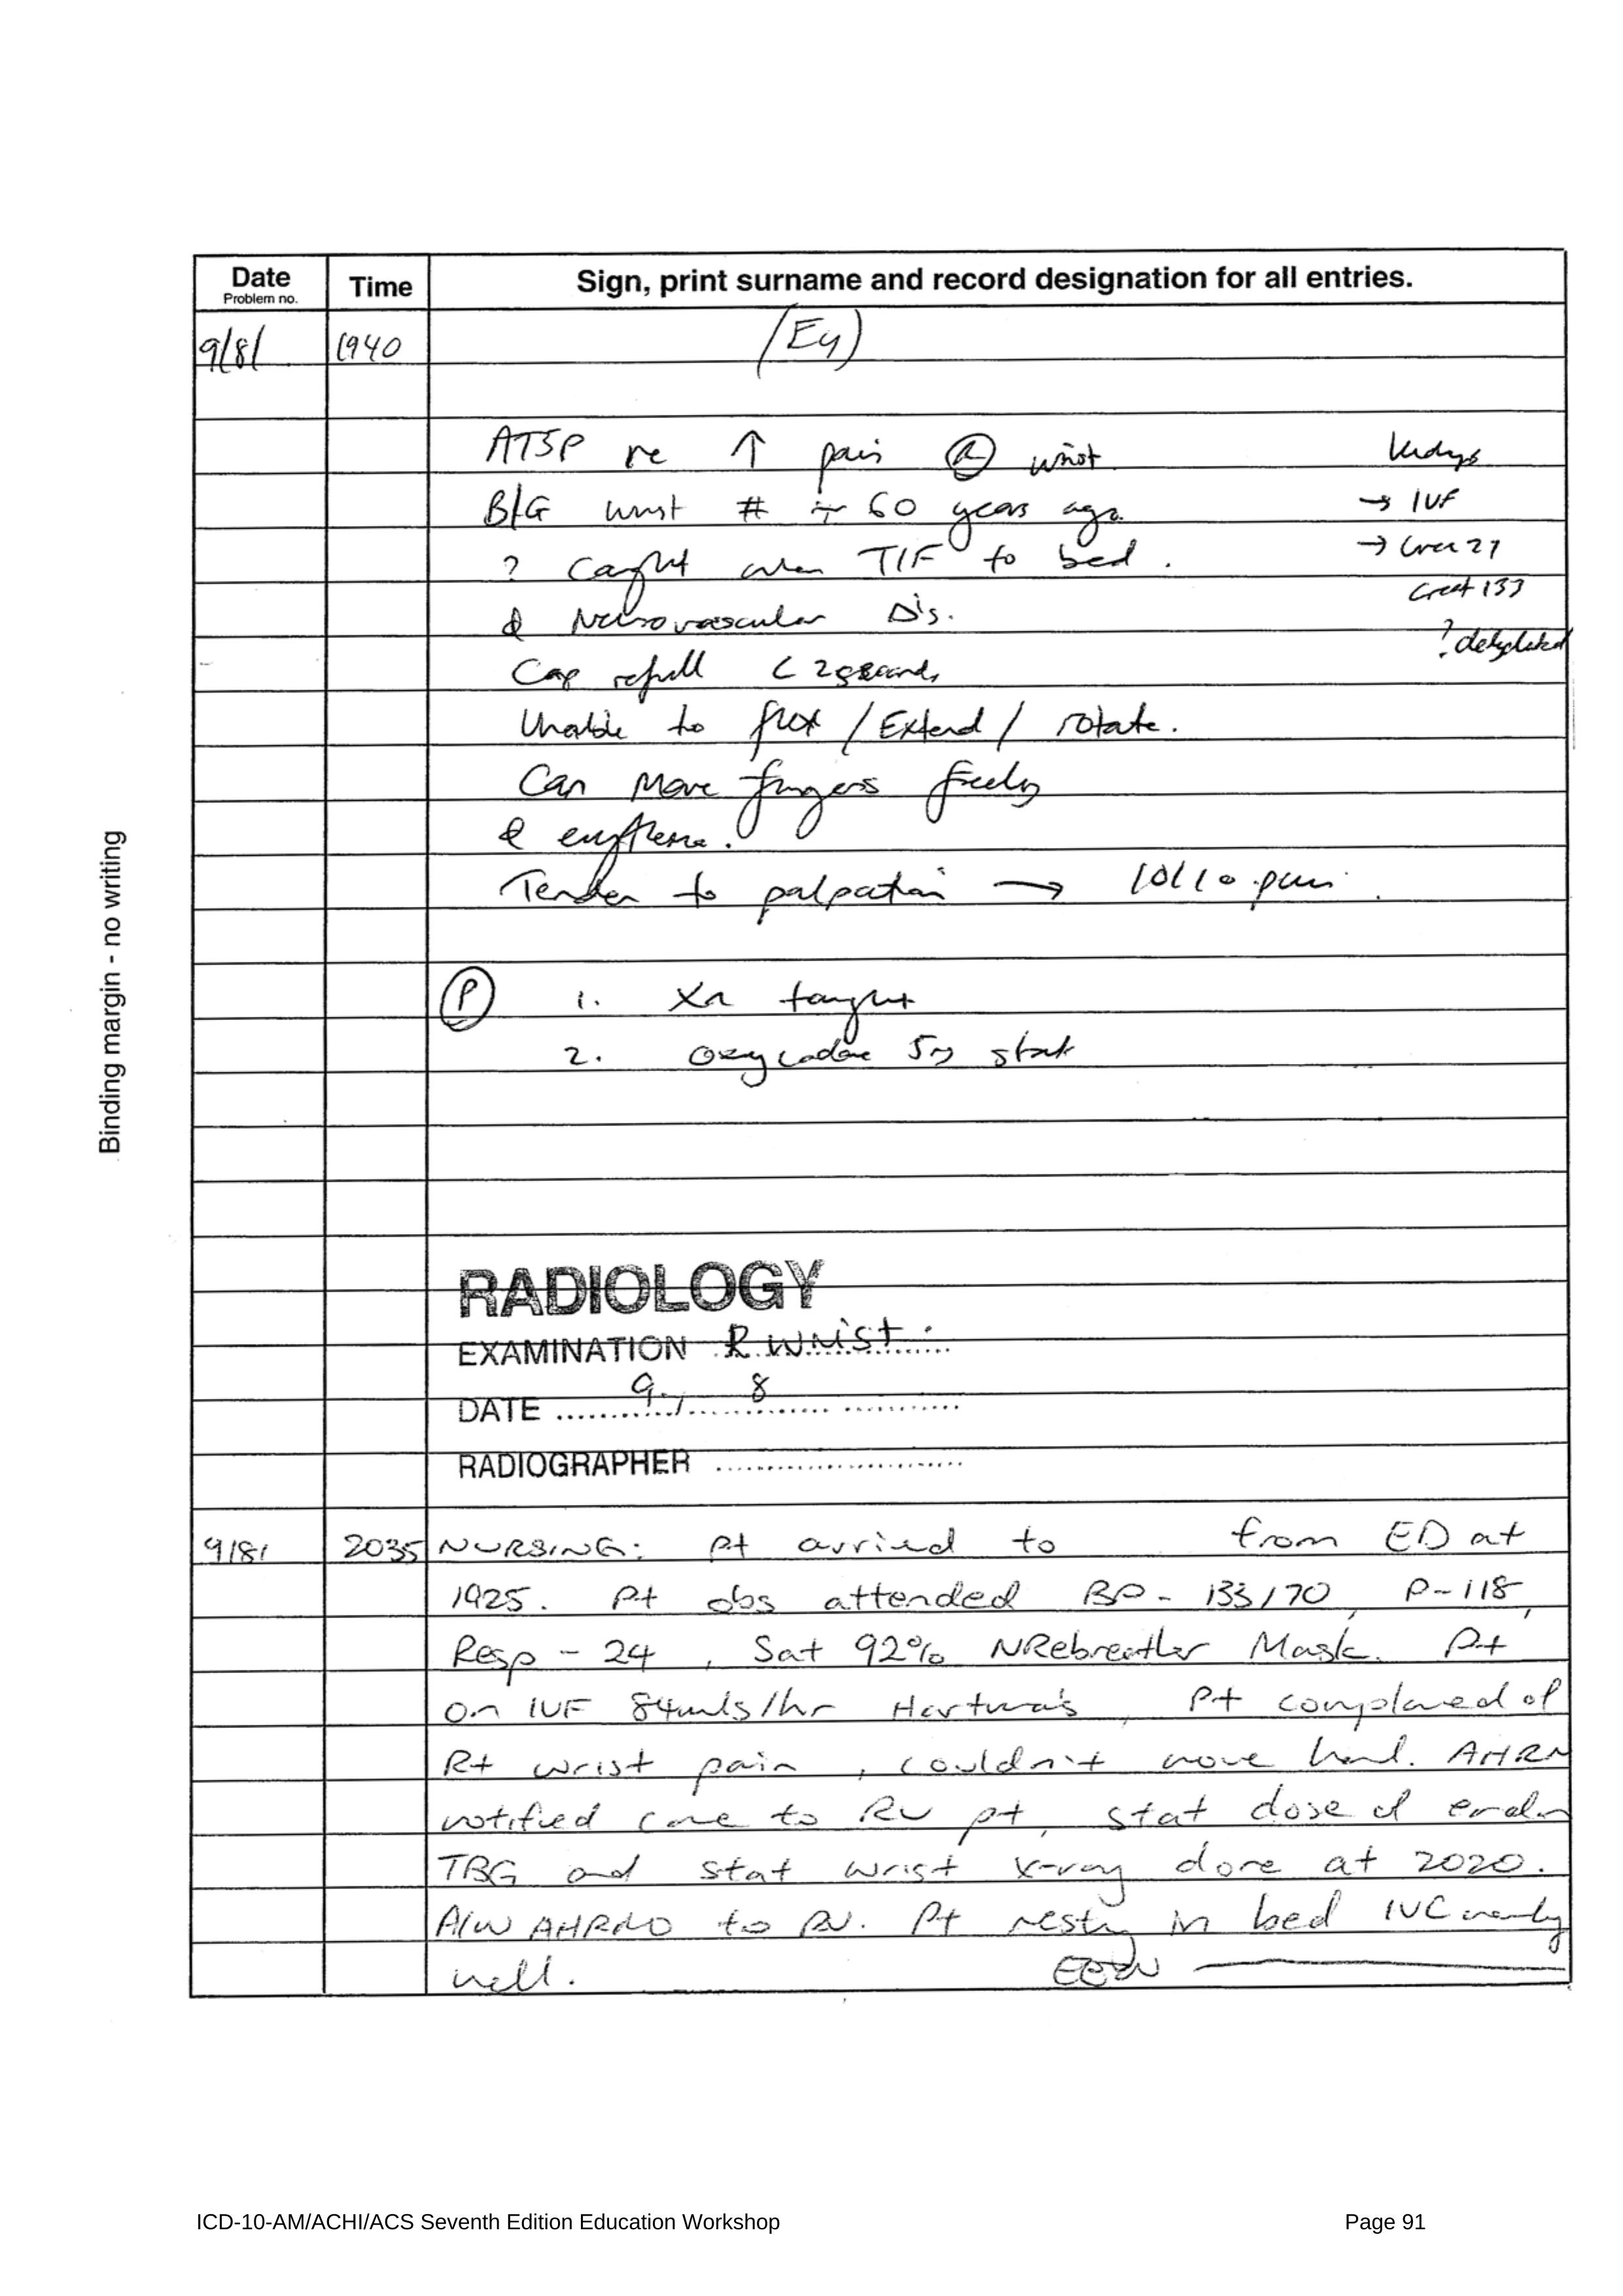 Date
Problem no.
Time
Sign, print surname and record designation for all entries.
9/8/ 1940
ATSP re ↑ pain Ⓡ wrist
B/G wrist # 60 years ago.
? caught when T/F to bed.
Neurovascular
Cap refill < 2 seconds
Unable to flex / Extend / rotate.
Can move fingers freely
Tender to palpation → 10/10 pain.
→ IVF
→ Urea 27
Creat 133
? dehydrated
Ⓟ 1. XR tonight
2. Oxycodone 5mg stat
RADIOLOGY
EXAMINATION R wrist.
DATE 9 / 8
RADIOGRAPHER
9/8/ 2035 NURSING: Pt arrived to from ED at
1925. Pt obs attended BP - 133/70, P-118,
Resp - 24, Sat 92% NRebreather Mask. Pt
on IVF 84mls/hr Hartman's, Pt complained of
Rt wrist pain, couldn't move hand.
notified came to RV pt, stat dose of
and stat wrist x-ray done at 2020.
A/W AHRMO to RV. Pt resting in bed IVC
well.
Binding margin - no writing
ICD-10-AM/ACHI/ACS Seventh Edition Education Workshop
Page 91